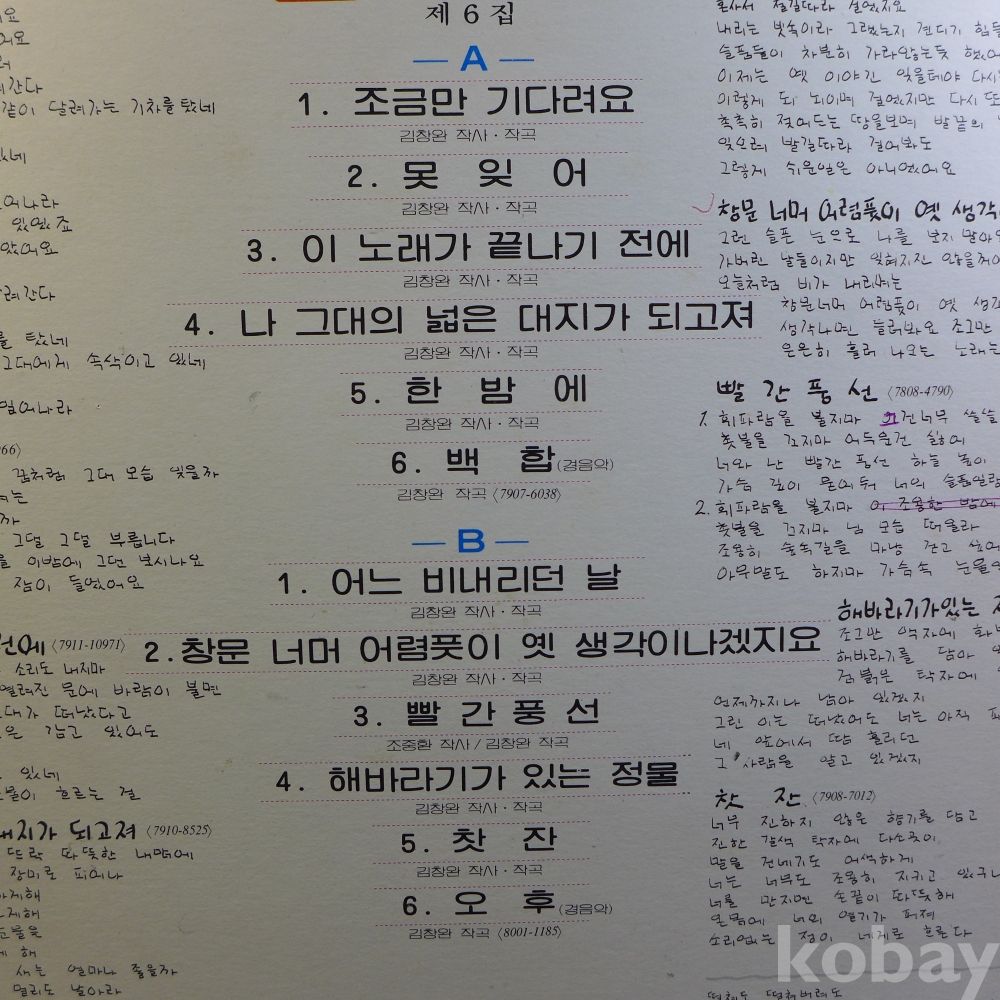 제 6 집
A
1. 조금만 기다려요
김창완 작사 · 작곡
2. 못 잊 어
김창완 작사 · 작곡
3. 이 노래가 끝나기 전에
김창완 작사 · 작곡
4. 나 그대의 넓은 대지가 되고져
김창완 작사 · 작곡
5. 한 밤 에
김창완 작사 · 작곡
6. 백 합(경음악)
김창완 작곡 〈7907-6038〉
B
1. 어느 비내리던 날
김창완 작사 · 작곡
2. 창문 너머 어렴풋이 옛 생각이나겠지요
김창완 작사 · 작곡
3. 빨 간 풍 선
조중환 작사 / 김창완 작곡
4. 해바라기가 있는 정물
김창완 작사 · 작곡
5. 찻 잔
김창완 작사 · 작곡
6. 오 후(경음악)
김창완 작곡 〈8001-1185〉
간다
같이 달려가는 기차를 탔네
있었죠
려간다
를 탔네
그대에게 속삭이고 있네
꿈처럼 그대 모습 잊을까
그덜 그덜 부릅니다
이밤에 그건 보시나요
잠이 들었어요
전에 〈7911-10971〉
소리도 내지마
열려진 문에 바람이 불면
대가 떠났다고
은 감고 있어도
있네
흐르는 걸
대지가 되고져 〈7910-8525〉
뜨락 따뜻한 내맘에
장미로 피어나
새는 얼마나 좋을까
멀리도 날아라
내리는 빗속이라 그랬는지 견디기 힘든
슬픔들이 차분히 가라앉는듯 했어
이제는 옛 이야긴 잊을테야 다시
이렇게 되뇌이며 걸었지만 다시 또
촉촉히 젖어드는 땅을보며 발끝의
잊으려 발길따라 걸어봐도
그렇게 쉬운일은 아니었어요
창문 너머 어렴풋이 옛 생각
그런 슬픈 눈으로 나를 보지 말아
가버린 날들이지만 잊혀지진 않을꺼예
오늘처럼 비가 내리면은
창문너머 어렴풋이 옛 생각
생각나면 들려봐요 조그만
은은히 흘러 나오는 노래는
빨 간 풍 선 〈7808-4790〉
1. 휘파람을 불지마 그건너무 쓸쓸
촛불을 끄지마 어두운건 싫어
너와 난 빨간 풍선 하늘 높이
가슴 깊이 묻어둬 너의 슬픔일랑
2. 휘파람을 불지마 이 조용한 밤에
촛불을 끄지마 님 모습 떠올라
조용히 숲속길을 마냥 걷고 싶어
아무말도 하지마 가슴속 눈물
해바라기가있는
조그만 액자에 화
해바라기를 담아
검붉은 탁자에
언제까지나 남아 있겠지
그린 이는 떠났어도 너는 아직
네 앞에서 땀 흘리던
그 사람을 알고 있겠지
찻 잔 〈7908-7012〉
너무 진하지 않은 향기를 담고
진한 갈색 탁자에 다소곳이
말을 건네기도 어색하게
너는 너무도 조용히 지키고 있구나
너를 만지면 손끝이 따뜻해
온몸에 너의 열기가 퍼져
소리없는 정이 내게로 흐른다
kobay